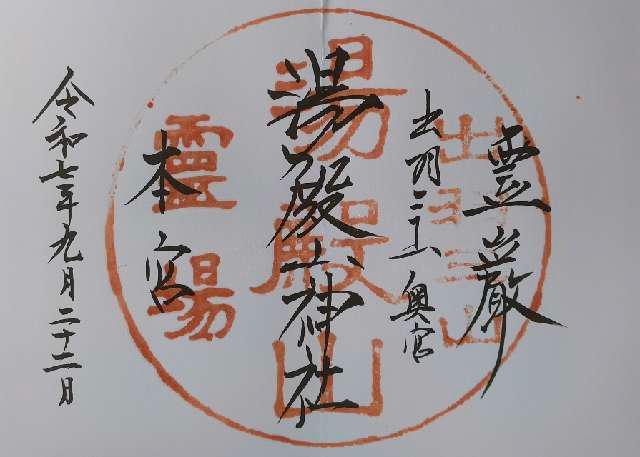 霊巌
出羽三山奥宮
湯殿山神社
本宮
令和七年九月二十二日
出羽三山
湯殿山
霊場